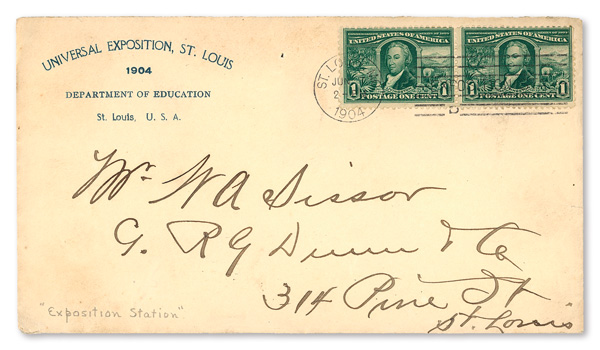 UNIVERSAL EXPOSITION, ST. LOUIS
1904
DEPARTMENT OF EDUCATION
St. Louis, U. S. A.
UNITED STATES OF AMERICA
1 1
POSTAGE ONE CENT
UNITED STATES OF AMERICA
1 1
POSTAGE ONE CENT
ST. LO
JU
2
1904
Mr W A Sissor
G. R G Dunn & Co
314 Pine St
St. Louis
"Exposition Station"